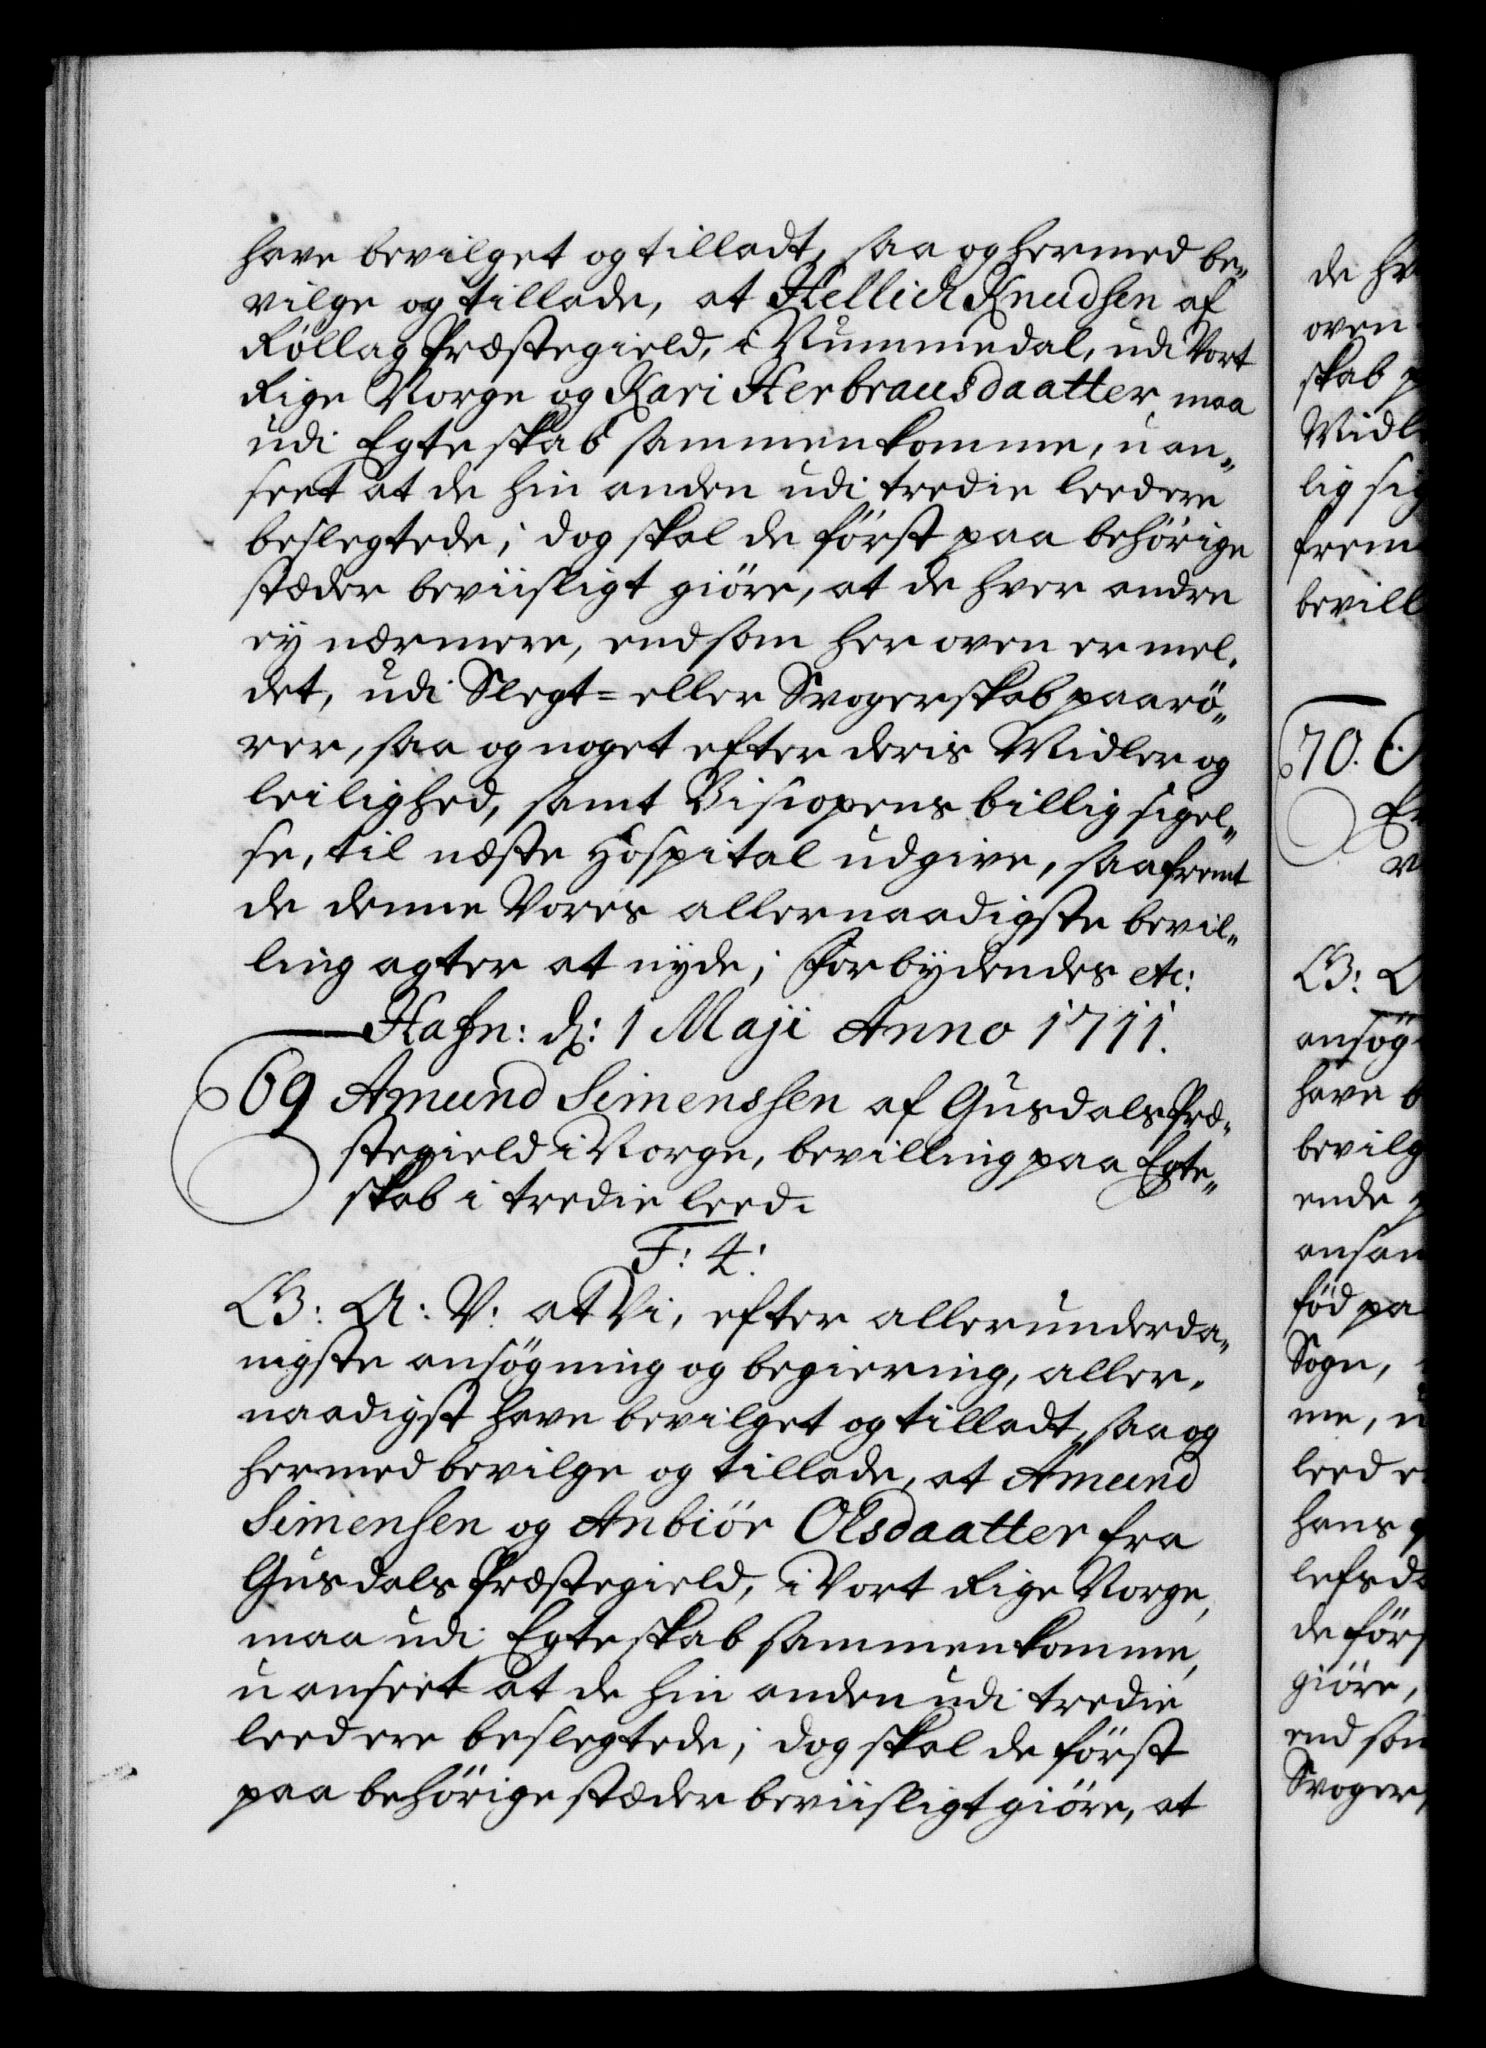 have bevilget og tilladt, saa og hermed be„
vilge og tillade, at Hellich Knudsen af
Røllag Præstegield, i Nummedal, udi Vort
Rige Norge og Kari Herbrausdaatter maa
udi Egteskab sammenkomme, uan„
seet at de hin anden udi tredie leed ere
beslegtede; dog skal de først paa behörige
stæder beviisligt giöre, at de hver andre
ey nærmere, end som her oven er mel„
det, udi Slegt= eller Svogerskab paarö„
rer, saa og noget efter deris Midler og
leilighed, samt Biscopens billig sigel„
se, til næste Hospital udgive, saafremt
de denne Vores allernaadigste bevil„
ling agter at nyde; Forbydendes etc:
Hafn: d: 1 Maji Anno 1711.
69 Amund Simenssen af Gusdals Præ„
stegield i Norge, bevilling paa Egte„
skab i tredie leed.
F: 4:
G: A: V: at Vi, efter allerunderda„
nigste ansögning og begiering, aller„
naadigst have bevilget og tilladt, saa og
hermed bevilge og tillade, at Amund
Simensen og Anbiör Olsdaatter fra
Gusdals Præstegield, i Vort Rige Norge,
maa udi Egteskab sammenkomme,
uanseet at de hin anden udi tredie
leed ere beslegtede; dog skal de först
paa behörige stæder beviisligt giöre, at
de hv
oven
skab p
Midl
lig sig
frem
bevill
70.
ansög
have b
bevilg
ende
ansan
föd pa
Sogn,
me, u
leed e
hans
lefsda
de förs
giöre,
end som
Svoger